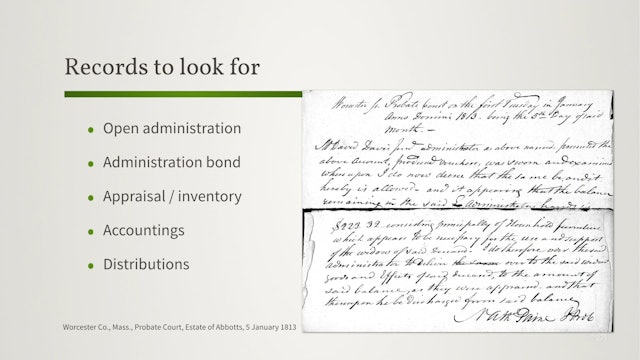 Records to look for
Open administration
Administration bond
Appraisal / inventory
Accountings
Distributions
Worcester Co., Mass., Probate Court, Estate of Abbotts, 5 January 1813
Worcester ss. Probate Court on the first Tuesday in January
Anno Domini 1813. being the 5th Day of said
month. —
Mr David Davis Junr administrator as above named, presented the
above Account, produced vouchers, was sworn and examined
whereupon I do now decree that the same be and it
hereby is allowed and it appearing that the balance
remaining in the said Administrators hands is
$223 32. consisting principally of Household furniture
which appears to be necessary for the use and support
of the widow of said deceased. I do therefore order the said
administrator to deliver over to the said widow
goods and Effects of said deceased, to the amount of
said balance, as they were appraised, and that
thereupon he be discharged from said balance
Nath Paine J Prob